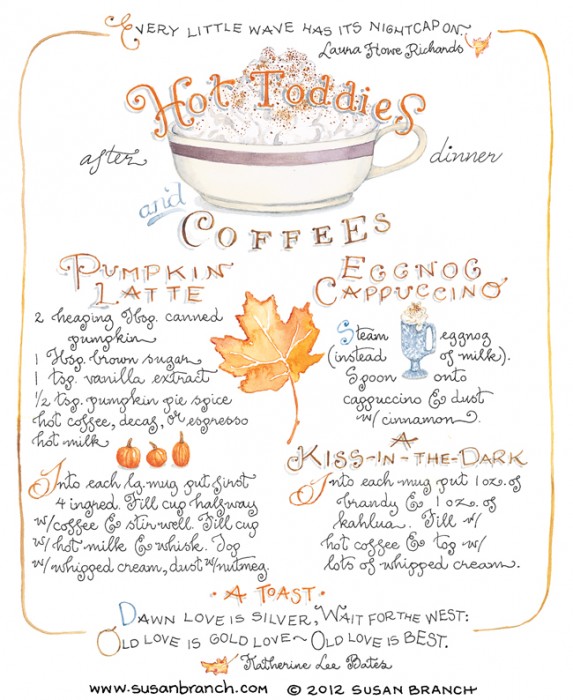 EVERY LITTLE WAVE HAS ITS NIGHTCAP ON~
Laura Howe Richards
Hot Toddies
after dinner
and
COFFEES
PUMPKIN
LATTE
2 heaping Tbsp. canned
pumpkin
1 Tbsp. brown sugar
1 tsp. vanilla extract
1/2 tsp. pumpkin pie spice
hot coffee, decaf, or espresso
hot milk
Into each lg. mug put first
4 ingred. Fill cup halfway
w/coffee & stir well. Fill cup
w/hot milk & whisk. Top
w/whipped cream, dust w/nutmeg.
EGGNOG
CAPPUCCINO
Steam eggnog
(instead of milk).
Spoon onto
cappuccino & dust
w/cinnamon.
A
KISS-IN-THE-DARK
Into each mug put 1 oz. of
brandy & 1 oz. of
kahlua. Fill w/
hot coffee & top w/
lots of whipped cream.
• A TOAST •
DAWN LOVE IS SILVER, WAIT FOR THE WEST:
OLD LOVE IS GOLD LOVE~ OLD LOVE IS BEST.
Katherine Lee Bates
www.susanbranch.com © 2012 SUSAN BRANCH